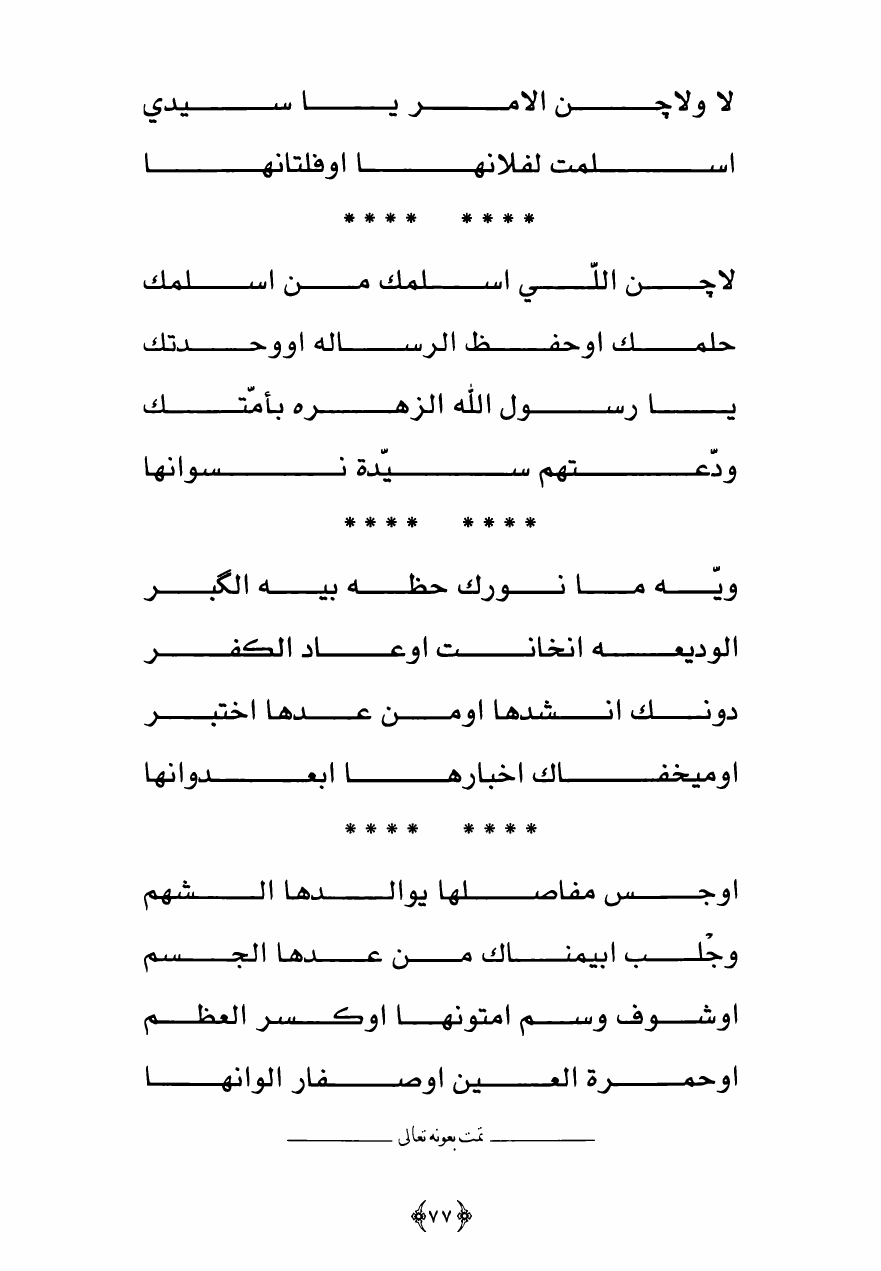 لا ولاچن الامر يا سيدي
اسلمت لفلانها اوفلتانها
**** ****
لاچن اللّي اسلمك من اسلمك
حلمك اوحفظ الرساله اووحدتك
يا رسول الله الزهره بأمّتك
ودّعتهم سيّدة نسوانها
**** ****
ويّه ما نورك حظه بيه الگبر
الوديعه انخانت اوعاد الكفر
دونك انشدها اومن عدها اختبر
اوميخفاك اخبارها ابعدوانها
**** ****
اوجس مفاصلها يوالدها الشهم
وجْلب ابيمناك من عدها الجسم
اوشوف وسم امتونها اوكسر العظم
اوحمرة العين اوصفار الوانها
تمت بعونه تعالى
﴿٧٧﴾